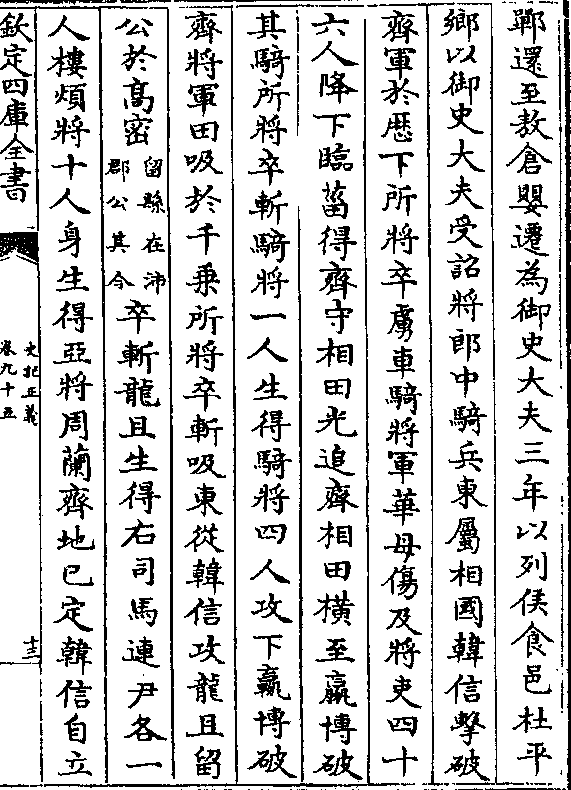 鄲還至敖倉嬰遷為御史大夫三年以列侯食邑杜平
鄉以御史大夫受詔將郎中騎兵東屬相國韓信擊破
齊軍於歴下所將卒虜車騎將軍華毋傷及將吏四十
六人降下臨菑得齊守相田光追齊相田横至嬴博破
其騎所將卒斬騎將一人生得騎將四人攻下嬴博破
齊將軍田吸於千乗所將卒斬吸東從韓信攻龍且留
公於髙密留縣在沛郡公其令卒斬龍且生得右司馬連尹各一
人樓煩將十人身生得亞將周蘭齊地已定韓信自立
欽定四庫全書
史記正義
卷九十五
十三